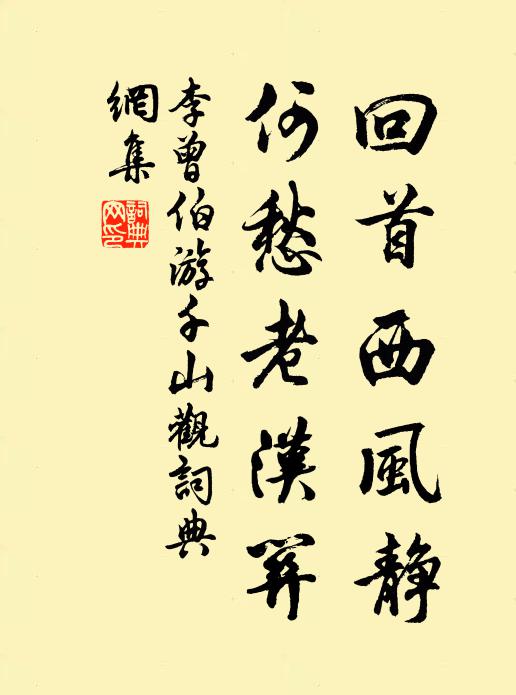 回首西風静
何愁老漢
李曾伯游千山觀詞典
網集
詞典
网印